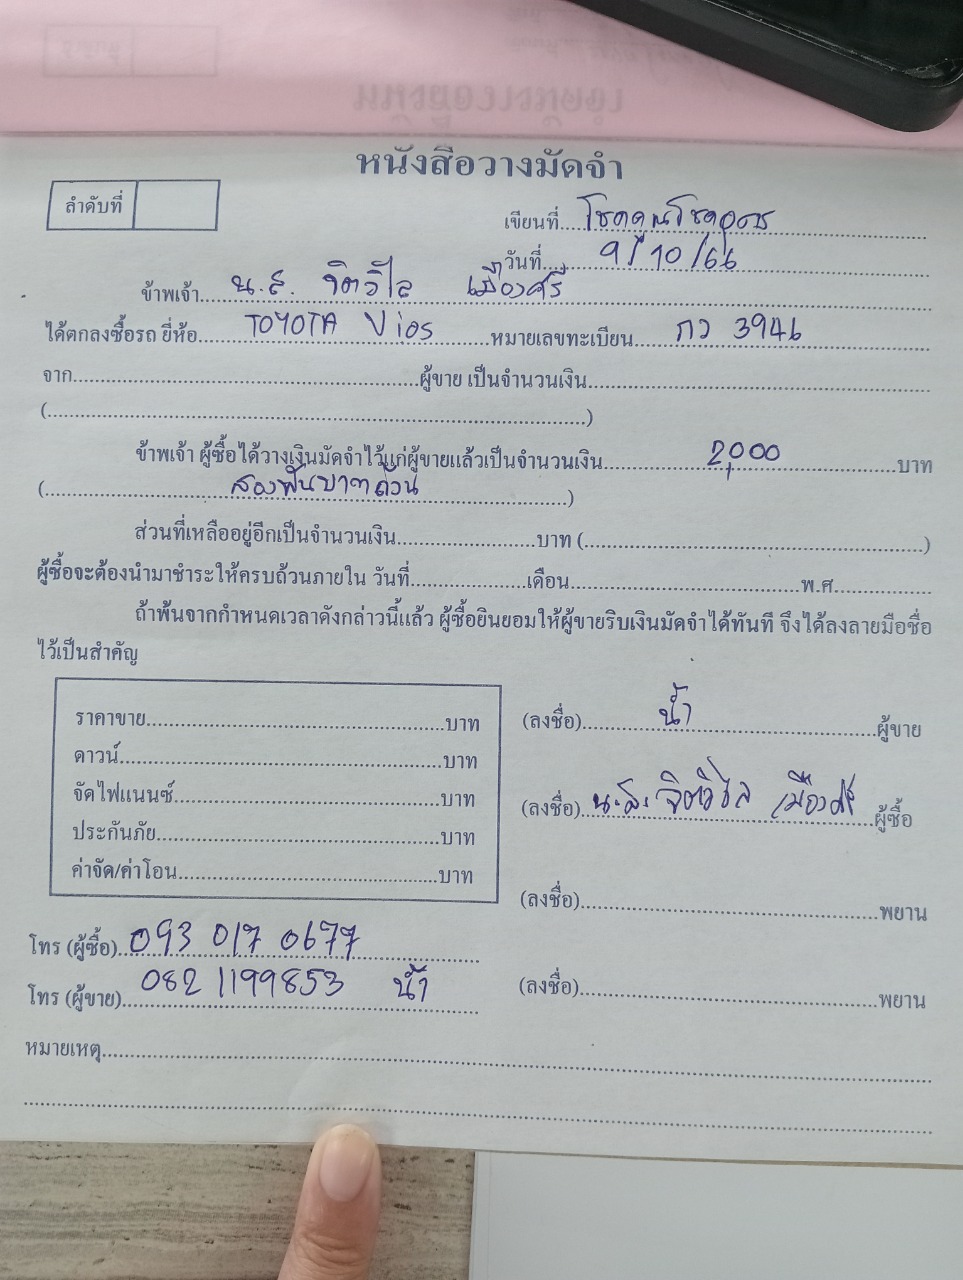 หนังสือวางมัดจำ
ลำดับที่
เขียนที่....โชคคูณโชคอุดร
วันที่....9/10/66
ข้าพเจ้า....น.ส. จิตวิไล เมืองศรี
ได้ตกลงซื้อรถ ยี่ห้อ....TOYOTA Vios....หมายเลขทะเบียน....กว 3946
จาก....ผู้ขาย เป็นจำนวนเงิน....
(....)
ข้าพเจ้า ผู้ซื้อได้วางเงินมัดจำไว้แก่ผู้ขายแล้วเป็นจำนวนเงิน....2,000....บาท
(....สองพันบาทถ้วน....)
ส่วนที่เหลืออยู่อีกเป็นจำนวนเงิน....บาท (....)
ผู้ซื้อจะต้องนำมาชำระให้ครบถ้วนภายใน วันที่....เดือน....พ.ศ.....
ถ้าพ้นจากกำหนดเวลาดังกล่าวนี้แล้ว ผู้ซื้อยินยอมให้ผู้ขายริบเงินมัดจำได้ทันที จึงได้ลงลายมือชื่อ
ไว้เป็นสำคัญ
ราคาขาย....บาท
ดาวน์....บาท
จัดไฟแนนซ์....บาท
ประกันภัย....บาท
ค่าจัด/ค่าโอน....บาท
(ลงชื่อ)....น้ำ....ผู้ขาย
(ลงชื่อ)....น.ส. จิตวิไล เมืองศรี....ผู้ซื้อ
(ลงชื่อ)....พยาน
(ลงชื่อ)....พยาน
โทร (ผู้ซื้อ)....093 017 0677
โทร (ผู้ขาย)....082 1199853 น้ำ
หมายเหตุ....